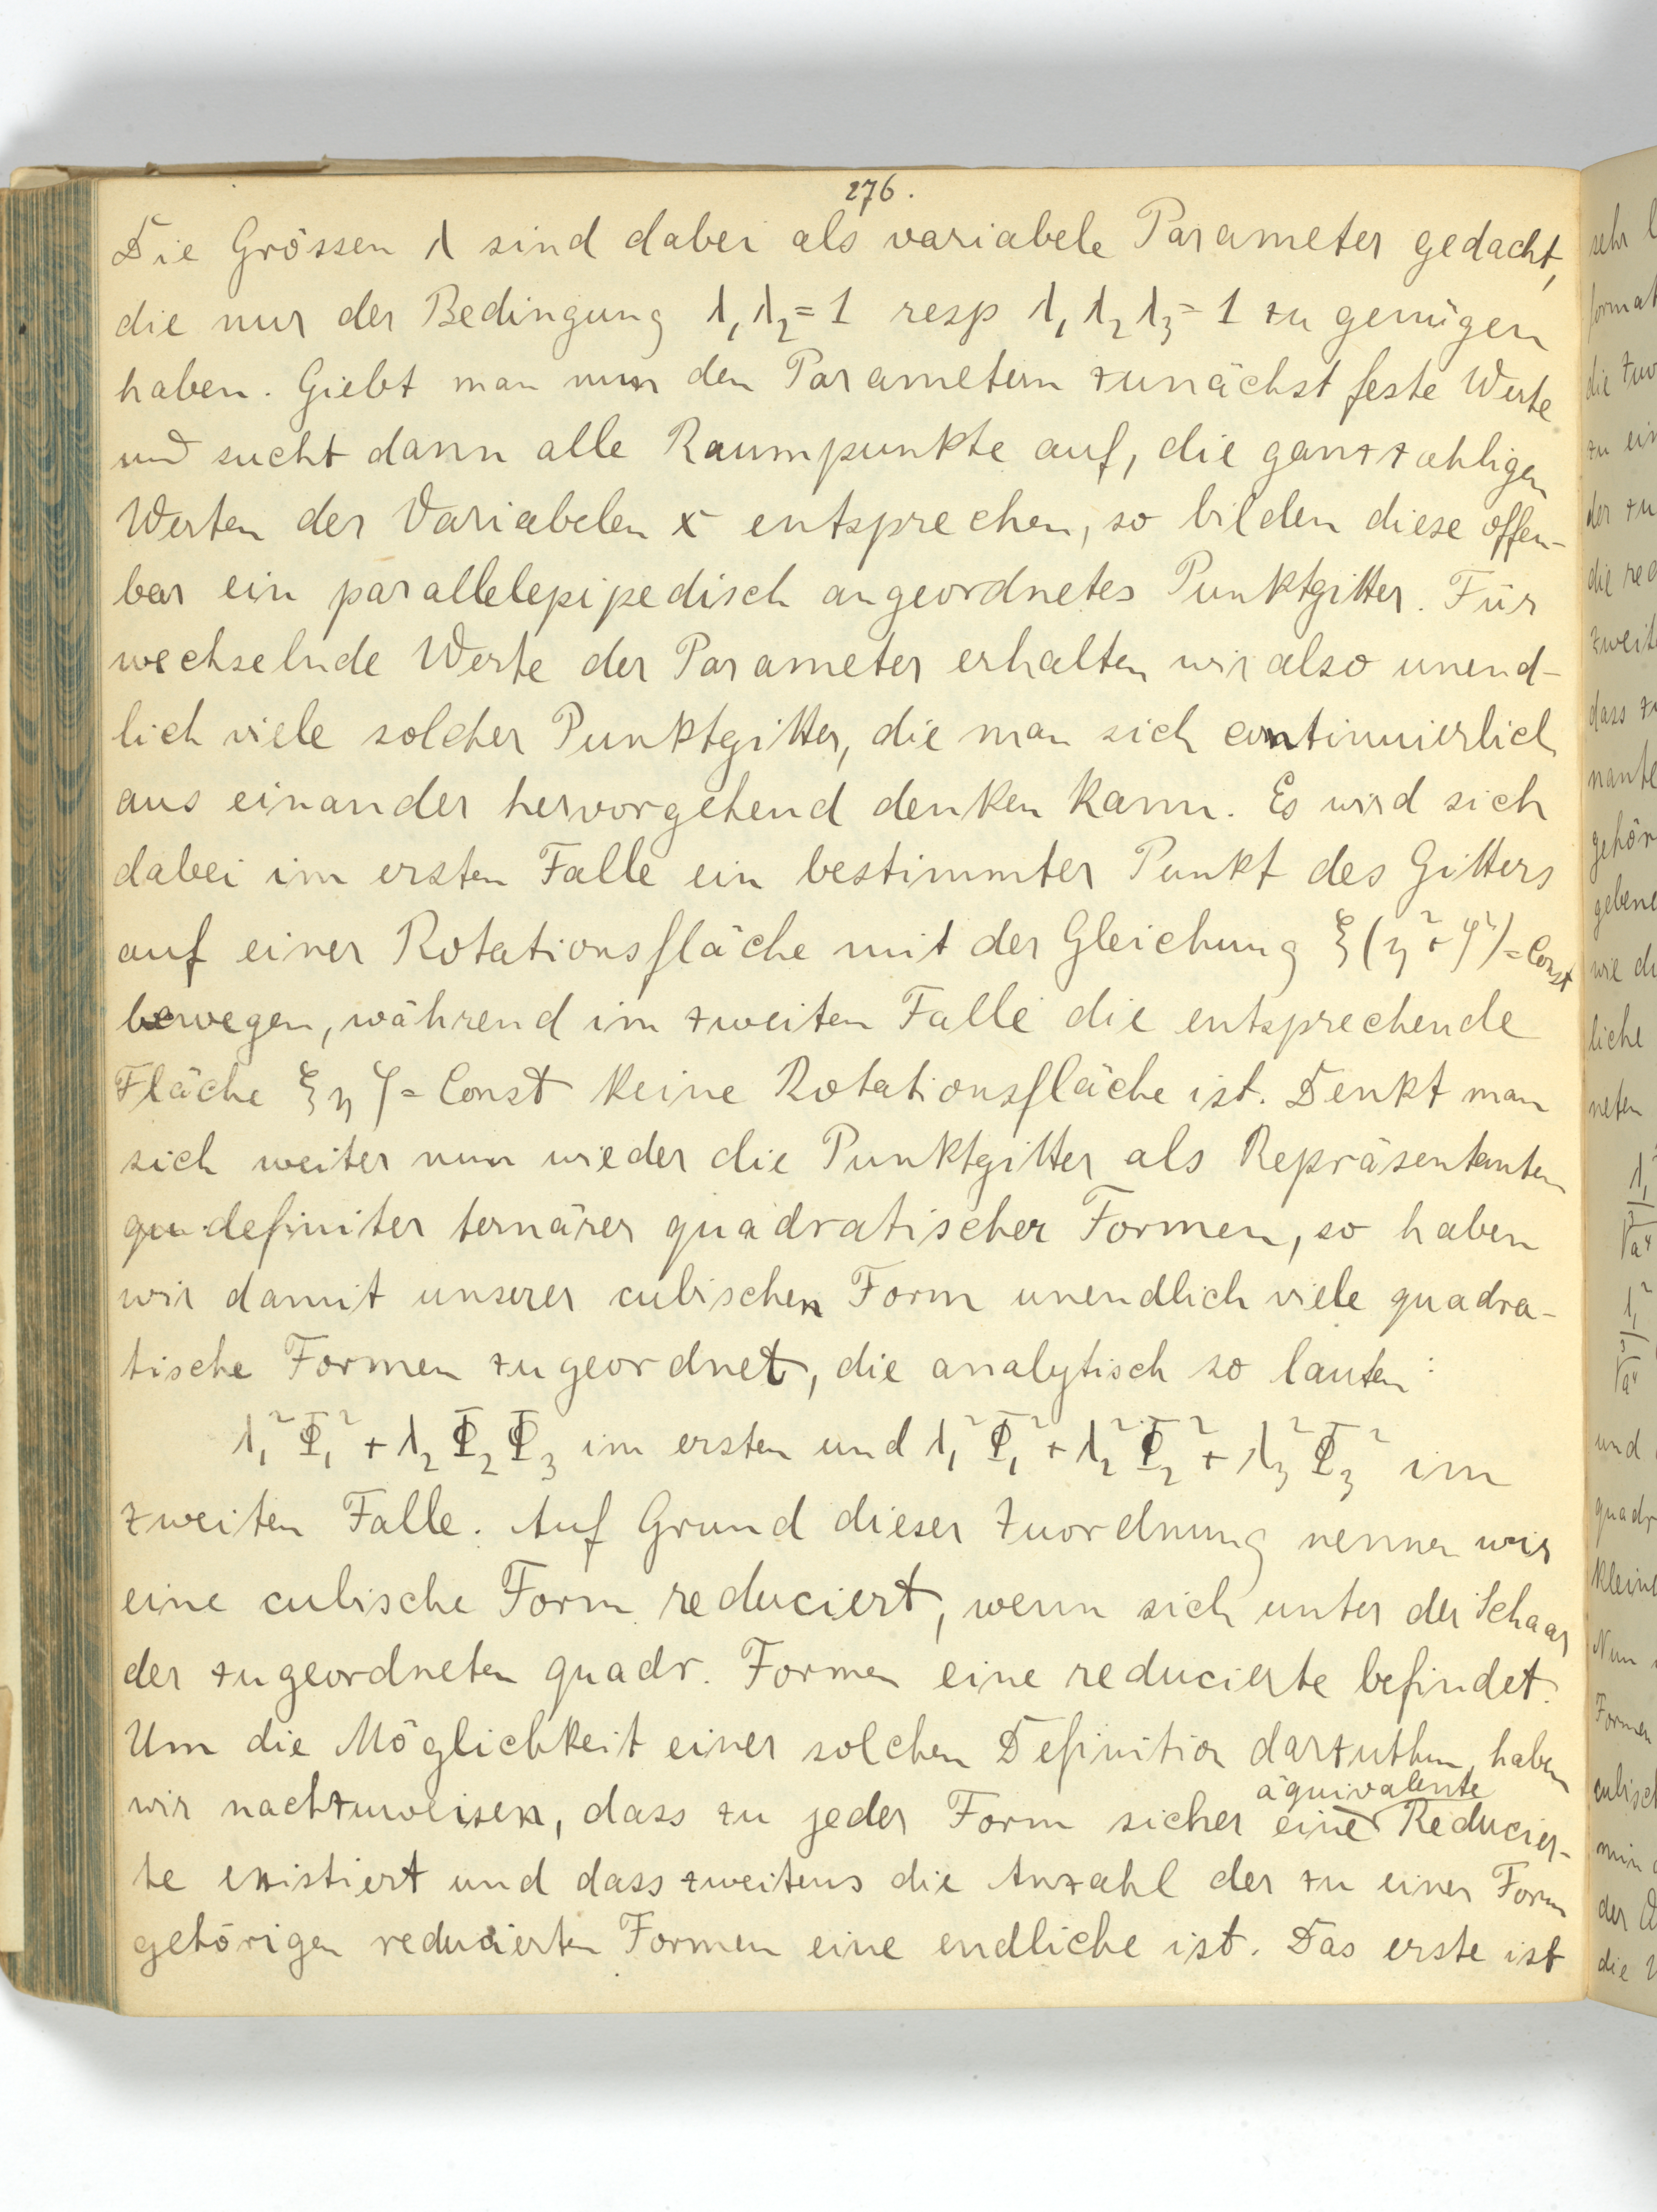 276.
Die Grössen λ sind dabei als variabele Parameter gedacht,
die nur der Bedingung λ₁λ₂=1 resp λ₁λ₂λ₃=1 zu genügen
haben. Giebt man nun den Parametern zunächst feste Werte
und sucht dann alle Raumpunkte auf, die ganzzahligen
Werten der Variabelen x entsprechen, so bilden diese offen-
bar ein parallelepipedisch angeordnetes Punktgitter. Für
wechselnde Werte der Parameter erhalten wir also unend-
lich viele solcher Punktgitter, die man sich continuierlich
aus einander hervorgehend denken kann. Es wird sich
dabei im ersten Falle ein bestimmter Punkt des Gitters
auf einer Rotationsfläche mit der Gleichung ξ(η²+ζ²)=Const
bewegen, während im zweiten Falle die entsprechende
Fläche ξηζ=Const keine Rotationsfläche ist. Denkt man
sich weiter nun wieder die Punktgitter als Repräsentanten
definiter ternärer quadratischer Formen, so haben
wir damit unserer cubischen Form unendlich viele quadra-
tische Formen zugeordnet, die analytisch so lauten:
λ₁²Φ₁²+λ₂Φ₂Φ₃ im ersten und λ₁²Φ₁²+λ₂²Φ₂²+λ₃²Φ₃² im
zweiten Falle. Auf Grund dieser Zuordnung nennen wir
eine cubische Form reduciert, wenn sich unter der Schaar
der zugeordneten quadr. Formen eine reducierte befindet.
Um die Möglichkeit einer solchen Definition darzuthun, haben
äquivalente
wir nachzuweisen, dass zu jeder Form sicher eine Reducier-
te existiert und dass zweitens die Anzahl der zu einer Form
gehörigen reducierten Formen eine endliche ist. Das erste ist
sehr
die
zu
der zu
die
dass
wie
liche
neten
und
Nun
Formen
der
die